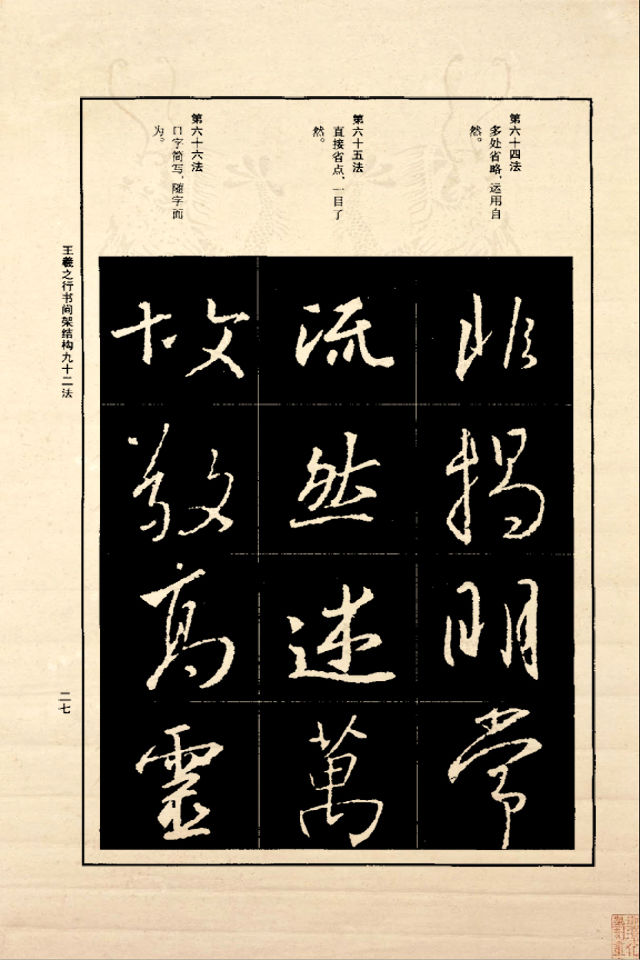 第六十四法
多处省略，运用自
然。
第六十五法
直接省点，一目了
然。
第六十六法
口字简写，随字而
为。
非揭明常
流然述萬
故敬高靈
王羲之行书间架结构九十二法
二七